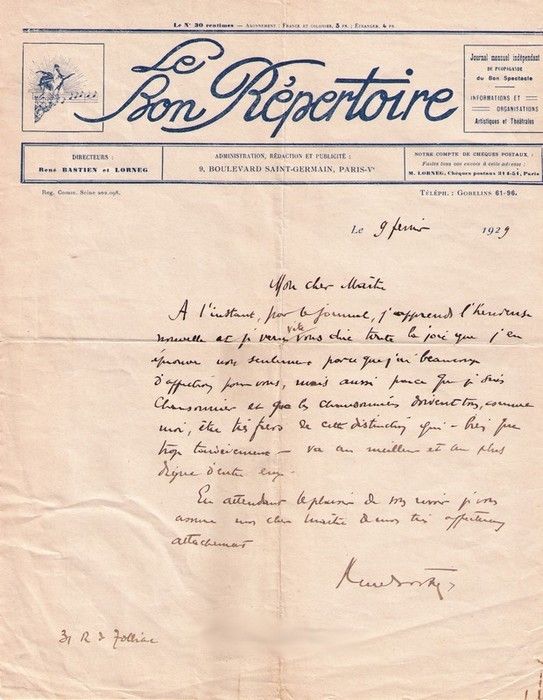 Le Nº 30 centimes — Abonnement : France et colonies, 3 fr. ; Étranger, 4 fr.
Le
Bon Répertoire
Journal mensuel indépendant
DE PROPAGANDE
du Bon Spectacle
INFORMATIONS ET
ORGANISATIONS
Artistiques et Théâtrales
DIRECTEURS :
René BASTIEN et LORNEG
ADMINISTRATION, RÉDACTION ET PUBLICITÉ :
9, BOULEVARD SAINT-GERMAIN, PARIS-Vº
NOTRE COMPTE DE CHÈQUES POSTAUX :
Faites tous vos envois à cette adresse :
M. LORNEG, Chèques postaux 314-51, Paris
Reg. Comm. Seine
TÉLÉPH. : GOBELINS 61-96.
Le 9 février 1929
Mon cher Maître
A l'instant, par le journal, j'apprends l'heureuse
nouvelle et je viens vite vous dire toute la joie que j'en
éprouve non seulement parce que j'ai beaucoup
d'affection pour vous, mais aussi parce que je suis
Chansonnier et que les chansonniers doivent tous, comme
moi, être très fiers de cette distinction qui
va au meilleur et au plus
digne d'entre eux.
En attendant le plaisir de vous revoir je vous
assure mon cher Maître de mon très affectueux
attachement
31 R de